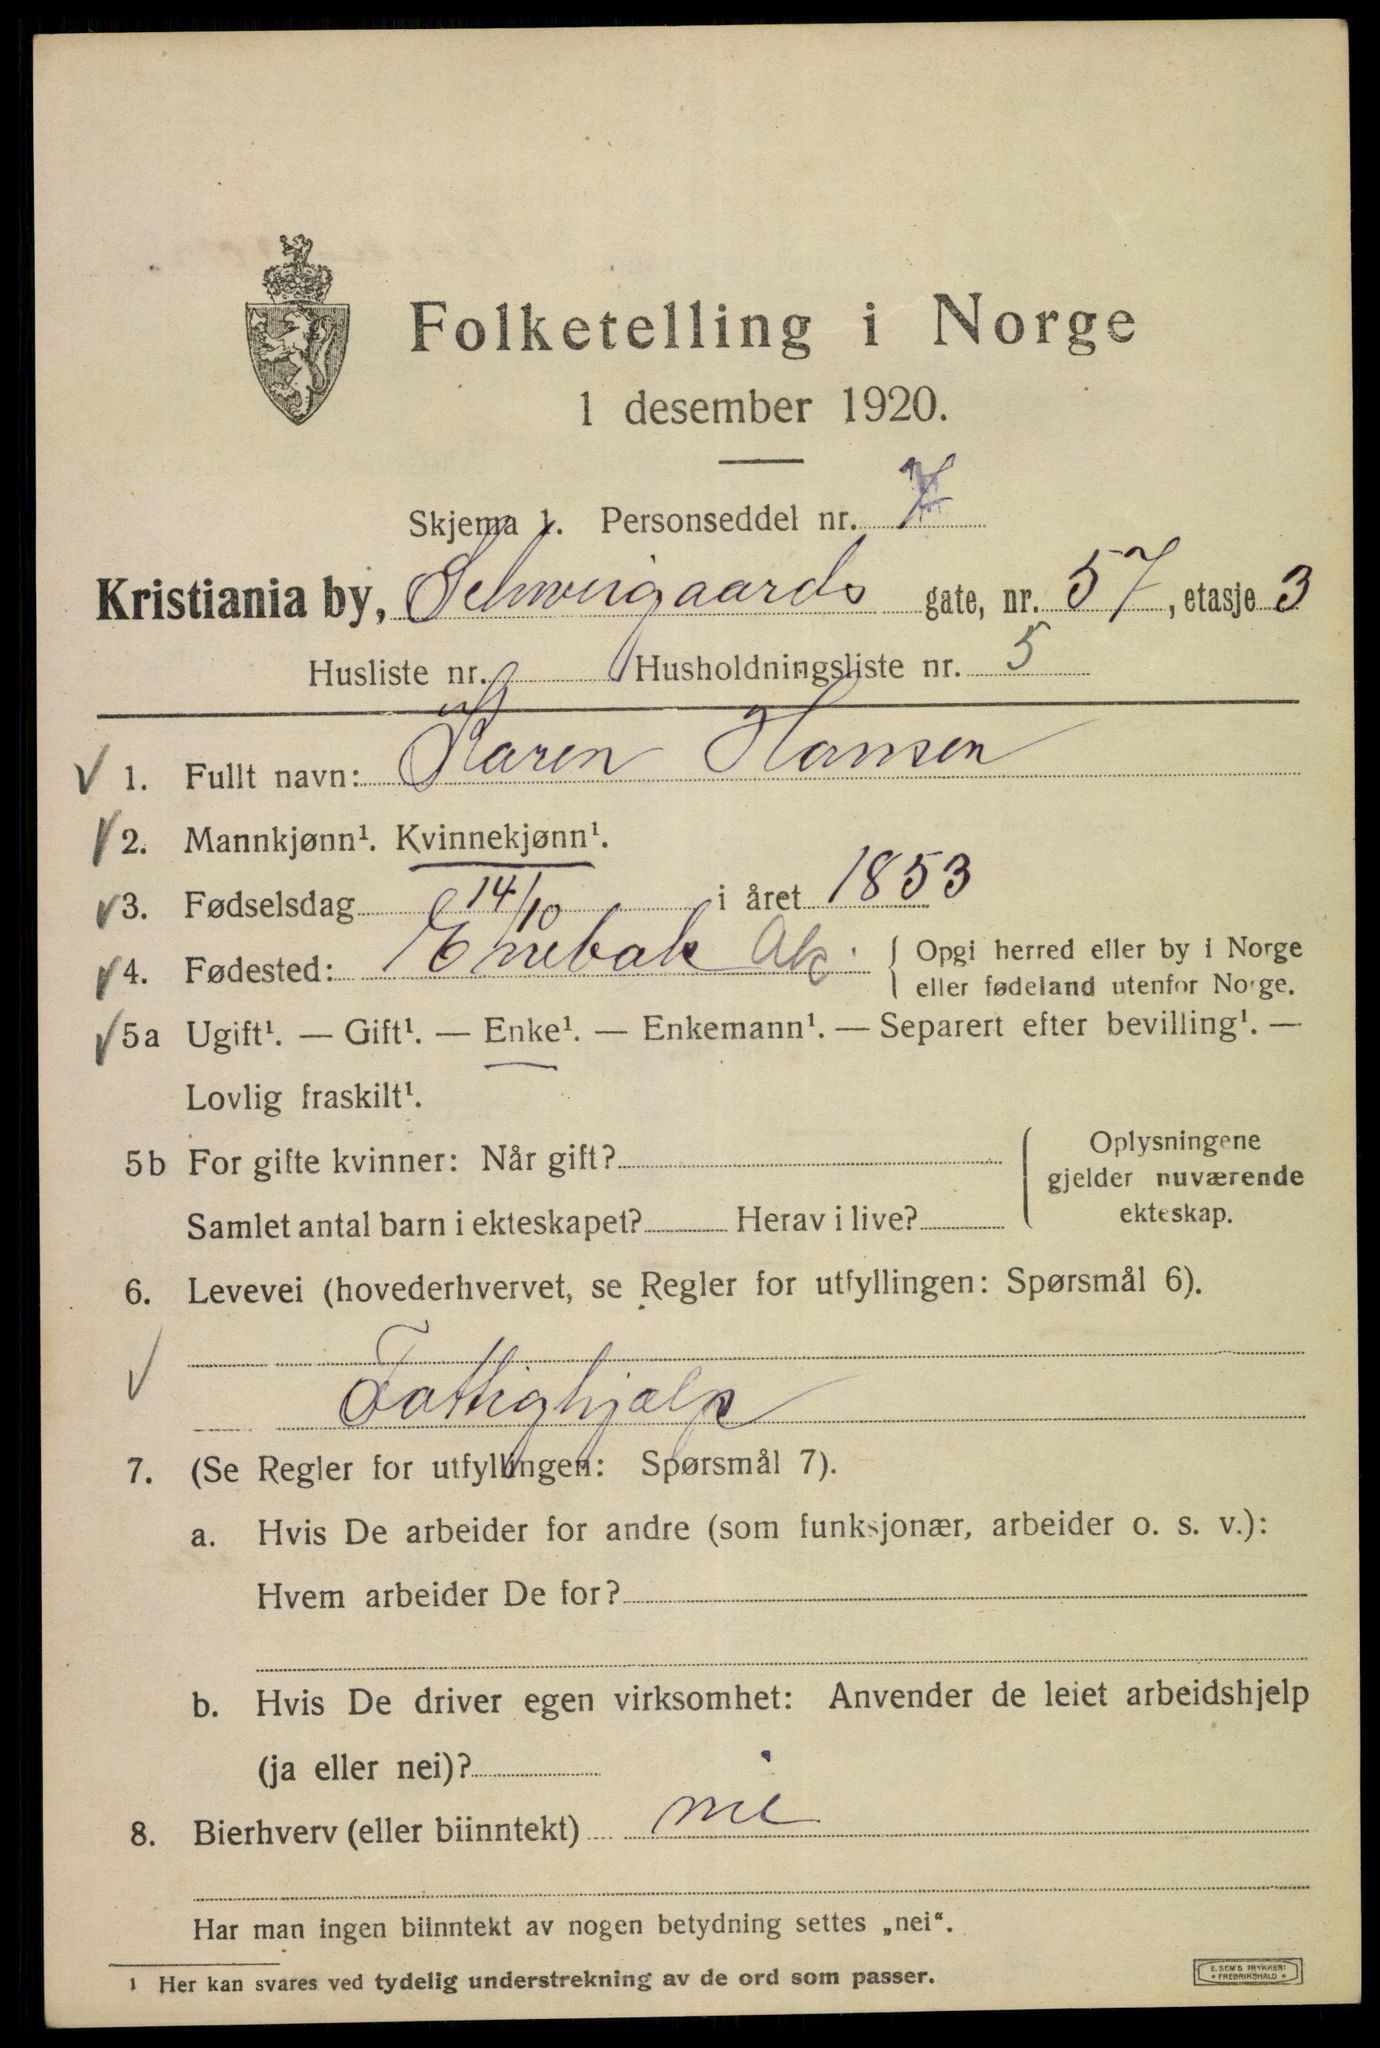 Folketelling i Norge
1 desember 1920.
Skjema 1. Personseddel nr. 7
Kristiania by, Schweigaards gate, nr. 57, etasje 3
Husliste nr. Husholdningsliste nr. 5
1. Fullt navn: Karen Hansen
2. Mannkjønn¹. Kvinnekjønn¹.
3. Fødselsdag 14/10 i året 1853
4. Fødested: Enebak Ak. Opgi herred eller by i Norge
eller fødeland utenfor Norge.
5a Ugift¹. — Gift¹. — Enke¹. — Enkemann¹. — Separert efter bevilling¹. —
Lovlig fraskilt¹.
5b For gifte kvinner: Når gift?
Samlet antal barn i ekteskapet? Herav i live?
Oplysningene
gjelder nuværende
ekteskap.
6. Levevei (hovederhvervet, se Regler for utfyllingen: Spørsmål 6).
Fattighjælp
7. (Se Regler for utfyllingen: Spørsmål 7).
a. Hvis De arbeider for andre (som funksjonær, arbeider o. s. v.):
Hvem arbeider De for?
b. Hvis De driver egen virksomhet: Anvender de leiet arbeidshjelp
(ja eller nei)?
8. Bierhverv (eller biinntekt) nei
Har man ingen biinntekt av nogen betydning settes „nei“.
¹ Her kan svares ved tydelig understrekning av de ord som passer.
E. SEM'S TRYKKERI
* FREDRIKSHALD *